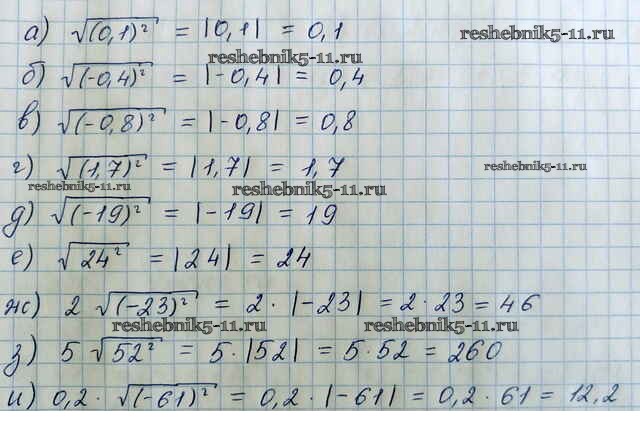 а) √(0,1)² = |0,1| = 0,1
reshebnik5-11.ru
reshebnik5-11.ru
б) √(-0,4)² = |-0,4| = 0,4
в) √(-0,8)² = |-0,8| = 0,8
г) √(1,7)² = |1,7| = 1,7
reshebnik5-11.ru
reshebnik5-11.ru
reshebnik5-11.ru
д) √(-19)² = |-19| = 19
е) √24² = |24| = 24
ж) 2 √(-23)² = 2 · |-23| = 2 · 23 = 46
reshebnik5-11.ru
reshebnik5-11.ru
з) 5 √52² = 5 · |52| = 5 · 52 = 260
и) 0,2 · √(-61)² = 0,2 · |-61| = 0,2 · 61 = 12,2
reshebnik5-11.ru